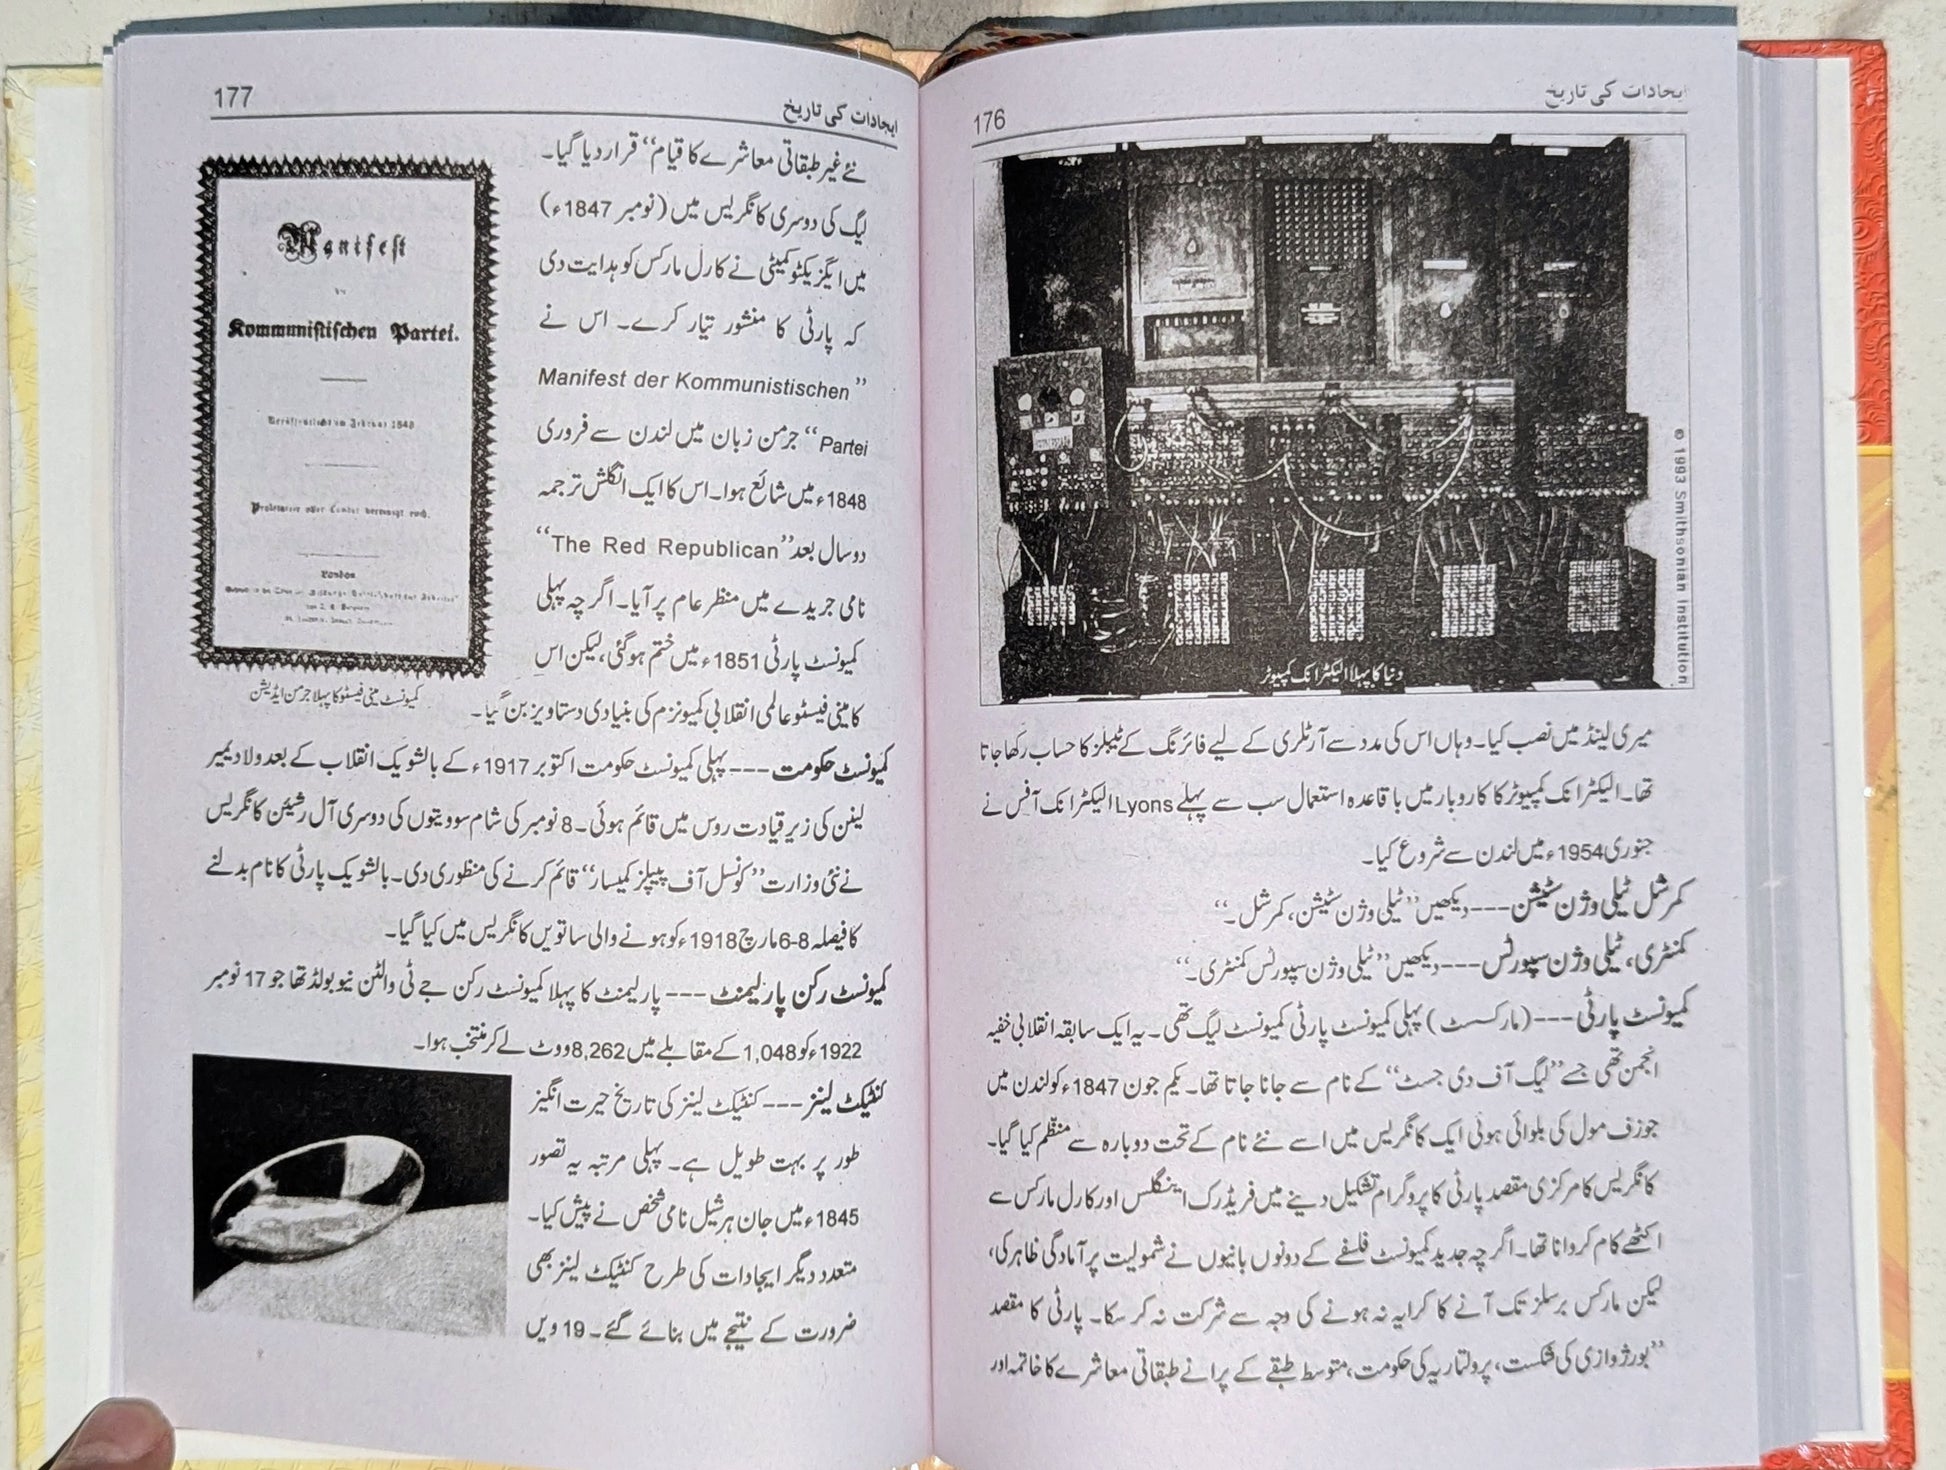 ایجادات کی تاریخ
176
© 1993 Smithsonian Institution
دنیا کا پہلا الیکٹرانک کمپیوٹر
میری لینڈ میں نصب کیا۔ وہاں اس کی مدد سے آرٹلری کے لیے فائرنگ کے ٹیبلز کا حساب رکھا جاتا
تھا۔ الیکٹرانک کمپیوٹر کا کاروبار میں باقاعدہ استعمال سب سے پہلے Lyons الیکٹرانک آفس نے
جنوری 1954ء میں لندن سے شروع کیا۔
کمرشل ٹیلی وژن سٹیشن --- دیکھیں ”ٹیلی وژن سٹیشن، کمرشل۔“
کمنٹری، ٹیلی وژن سپورٹس --- دیکھیں ”ٹیلی وژن سپورٹس کمنٹری۔“
کمیونسٹ پارٹی --- (مارکسسٹ) پہلی کمیونسٹ پارٹی کمیونسٹ لیگ تھی۔ یہ ایک سابقہ انقلابی خفیہ
انجمن تھی جسے ”لیگ آف دی جسٹ“ کے نام سے جانا جاتا تھا۔ یکم جون 1847ء کو لندن میں
جوزف مول کی بلوائی ہوئی ایک کانگریس میں اسے نئے نام کے تحت دوبارہ سے منظم کیا گیا۔
کانگریس کا مرکزی مقصد پارٹی کا پروگرام تشکیل دینے میں فریڈرک اینگلس اور کارل مارکس سے
اکٹھے کام کروانا تھا۔ اگرچہ جدید کمیونسٹ فلسفے کے دونوں بانیوں نے شمولیت پر آمادگی ظاہر کی،
لیکن مارکس برسلز تک آنے کا کرایہ نہ ہونے کی وجہ سے شرکت نہ کر سکا۔ پارٹی کا مقصد
”بورژوازی کی شکست، پرولتاریہ کی حکومت، متوسط طبقے کے پرانے طبقاتی معاشرے کا خاتمہ اور
ایجادات کی تاریخ
177
نئے غیر طبقاتی معاشرے کا قیام“ قرار دیا گیا۔
لیگ کی دوسری کانگریس میں (نومبر 1847ء)
میں ایگزیکٹو کمیٹی نے کارل مارکس کو ہدایت دی
کہ پارٹی کا منشور تیار کرے۔ اس نے
”Manifest der Kommunistischen
Partei“ جرمن زبان میں لندن سے فروری
1848ء میں شائع ہوا۔ اس کا ایک انگلش ترجمہ
دو سال بعد ”The Red Republican“
نامی جریدے میں منظر عام پر آیا۔ اگرچہ پہلی
کمیونسٹ پارٹی 1851ء میں ختم ہوگئی، لیکن اس
کا مینی فیسٹو عالمی انقلابی کمیونزم کی بنیادی دستاویز بن گیا۔
Manifest
Kommunistischen Partei.
Veröffentlicht im Februar 1848
Proletarier aller Länder vereinigt euch.
London
کمیونسٹ مینی فیسٹو کا پہلا جرمن ایڈیشن
کمیونسٹ حکومت --- پہلی کمیونسٹ حکومت اکتوبر 1917ء کے بالشویک انقلاب کے بعد ولادیمیر
لینن کی زیر قیادت روس میں قائم ہوئی۔ 8 نومبر کی شام سوویتوں کی دوسری آل رشیئن کانگریس
نے نئی وزارت ”کونسل آف پیپلز کمیسار“ قائم کرنے کی منظوری دی۔ بالشویک پارٹی کا نام بدلنے
کا فیصلہ 8-6 مارچ 1918ء کو ہونے والی ساتویں کانگریس میں کیا گیا۔
کمیونسٹ رکن پارلیمنٹ --- پارلیمنٹ کا پہلا کمیونسٹ رکن جے ٹی والٹن نیو بولڈ تھا جو 17 نومبر
1922ء کو 1,048 کے مقابلے میں 8,262 ووٹ لے کر منتخب ہوا۔
کنٹیکٹ لینز --- کنٹیکٹ لینز کی تاریخ حیرت انگیز
طور پر بہت طویل ہے۔ پہلی مرتبہ یہ تصور
1845ء میں جان ہرشیل نامی شخص نے پیش کیا۔
متعدد دیگر ایجادات کی طرح کنٹیکٹ لینز بھی
ضرورت کے نتیجے میں بنائے گئے۔ 19 ویں